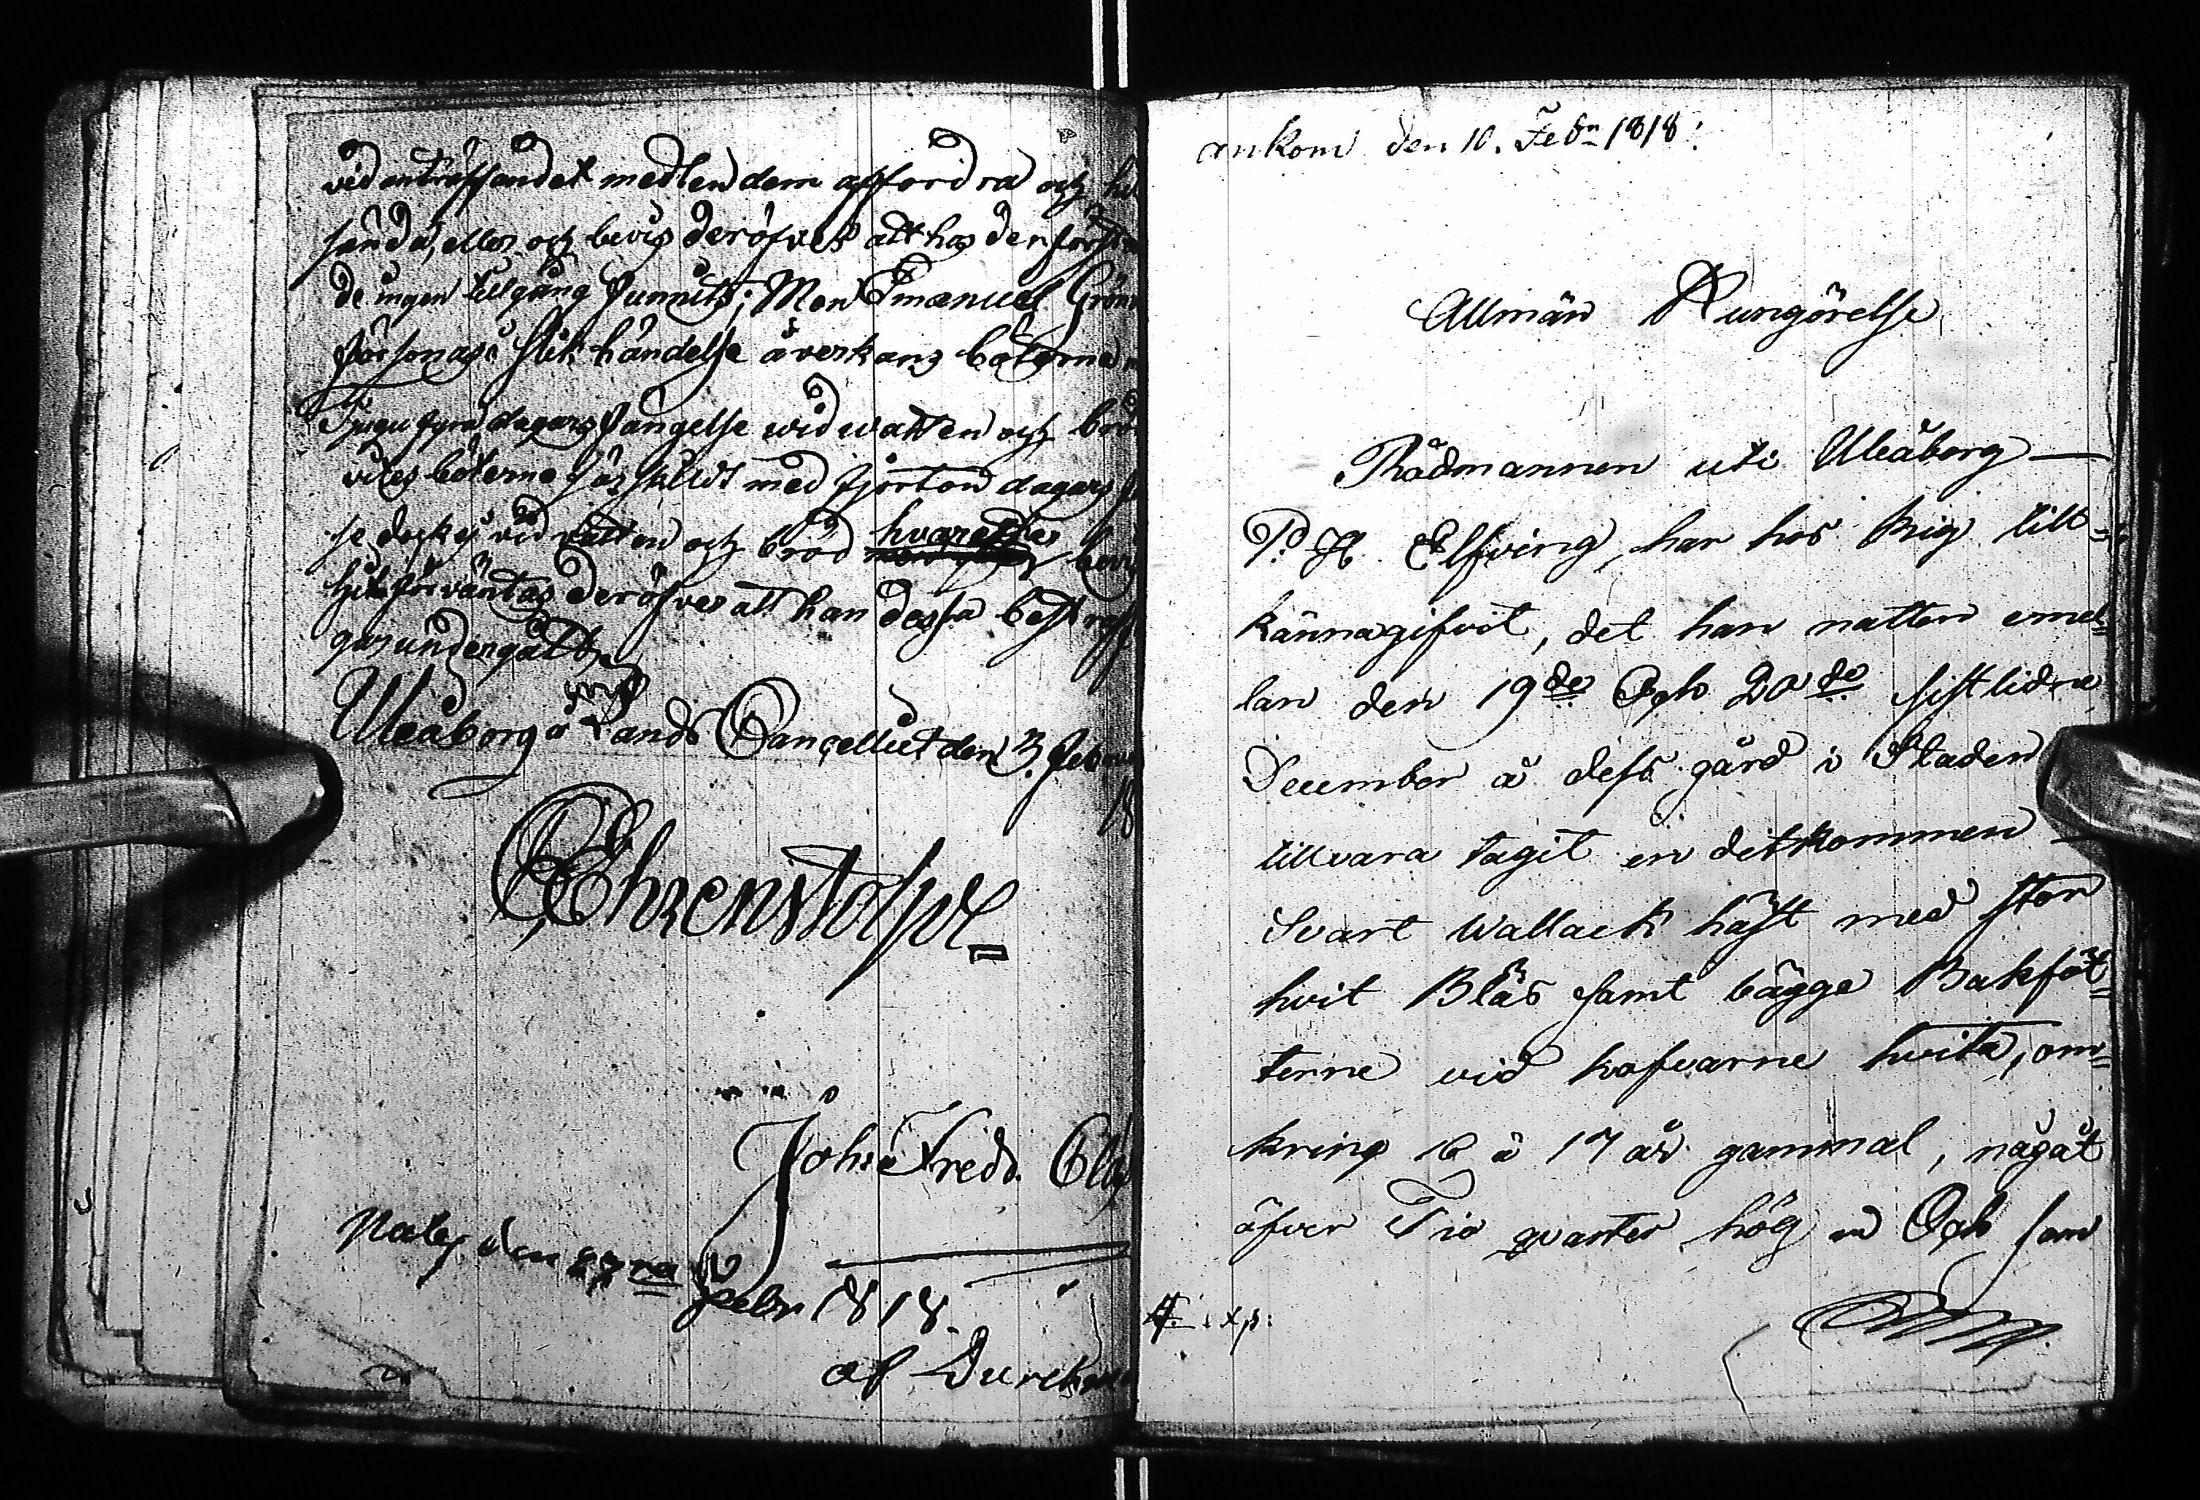 vid anträffandet medlen dem affordra och
sända, eller och bevis deröfver att hos den
de ingen tillgång funnits; Men Emanuel Grön
försonar i slik händelse åverkans böterne
Tjugufyra dagars fängelse wid watten och bröd
vites böterne särskildt med fjorton dagars
se desslikes vid vatten och bröd hvarefter bevis
hit förväntas deröfver att han dessa bestraff
gar undergått
Uleåborg å Lands Cancelliet den 3. Februa
18
Ehrenstolpe
Joh: Fredr.
den 27
Febr 1818.
af
ankom den 10. Febr 1818:
Allmän Kungörelse
Rådmannen uti Uleåborg —
P. H. Elfving, har hos mig till=
kännagifvit, det han natten emel=
lan den 19de Och 20de sistlidne
December å dess gård i Staden
tillvara tagit en ditkommen —
Svart Wallack häst med stor
hvit Bläs samt bägge Bakföt=
terne vid hofvarne hvita, om=
kring 16 à 17 år gammal, något
öfver Tio qvarter hög Och som